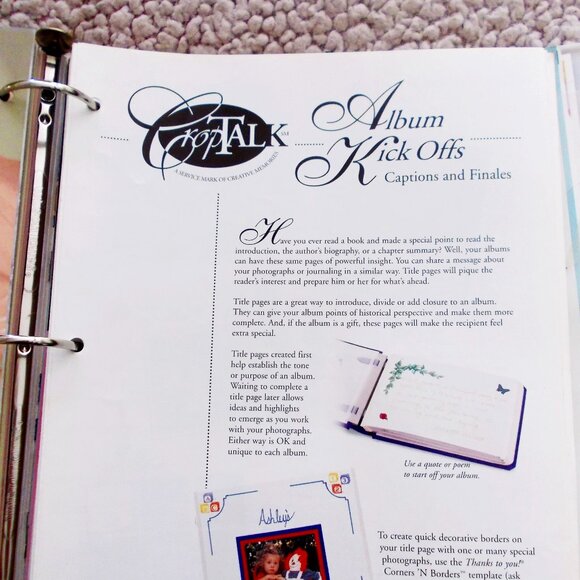 CropTALK SM
A SERVICE MARK OF CREATIVE MEMORIES
Album
Kick Offs
Captions and Finales
Have you ever read a book and made a special point to read the
introduction, the author's biography, or a chapter summary? Well, your albums
can have these same pages of powerful insight. You can share a message about
your photographs or journaling in a similar way. Title pages will pique the
reader's interest and prepare him or her for what's ahead.
Title pages are a great way to introduce, divide or add closure to an album.
They can give your album points of historical perspective and make them more
complete. And, if the album is a gift, these pages will make the recipient feel
extra special.
Title pages created first
help establish the tone
or purpose of an album.
Waiting to complete a
title page later allows
ideas and highlights
to emerge as you work
with your photographs.
Either way is OK and
unique to each album.
Use a quote or poem
to start off your album.
Ashley's
To create quick decorative borders on
your title page with one or many special
photographs, use the Thanks to you!®
Corners 'N Borders™ template (ask